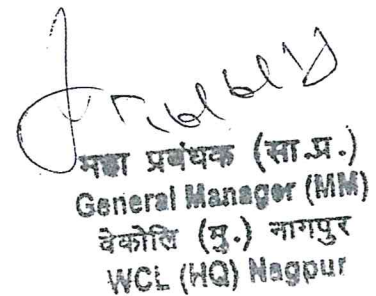 महा प्रबंधक (सा.प्र.)
General Manager (MM)
वेकोलि (मु.) नागपुर
WCL (HQ) Nagpur